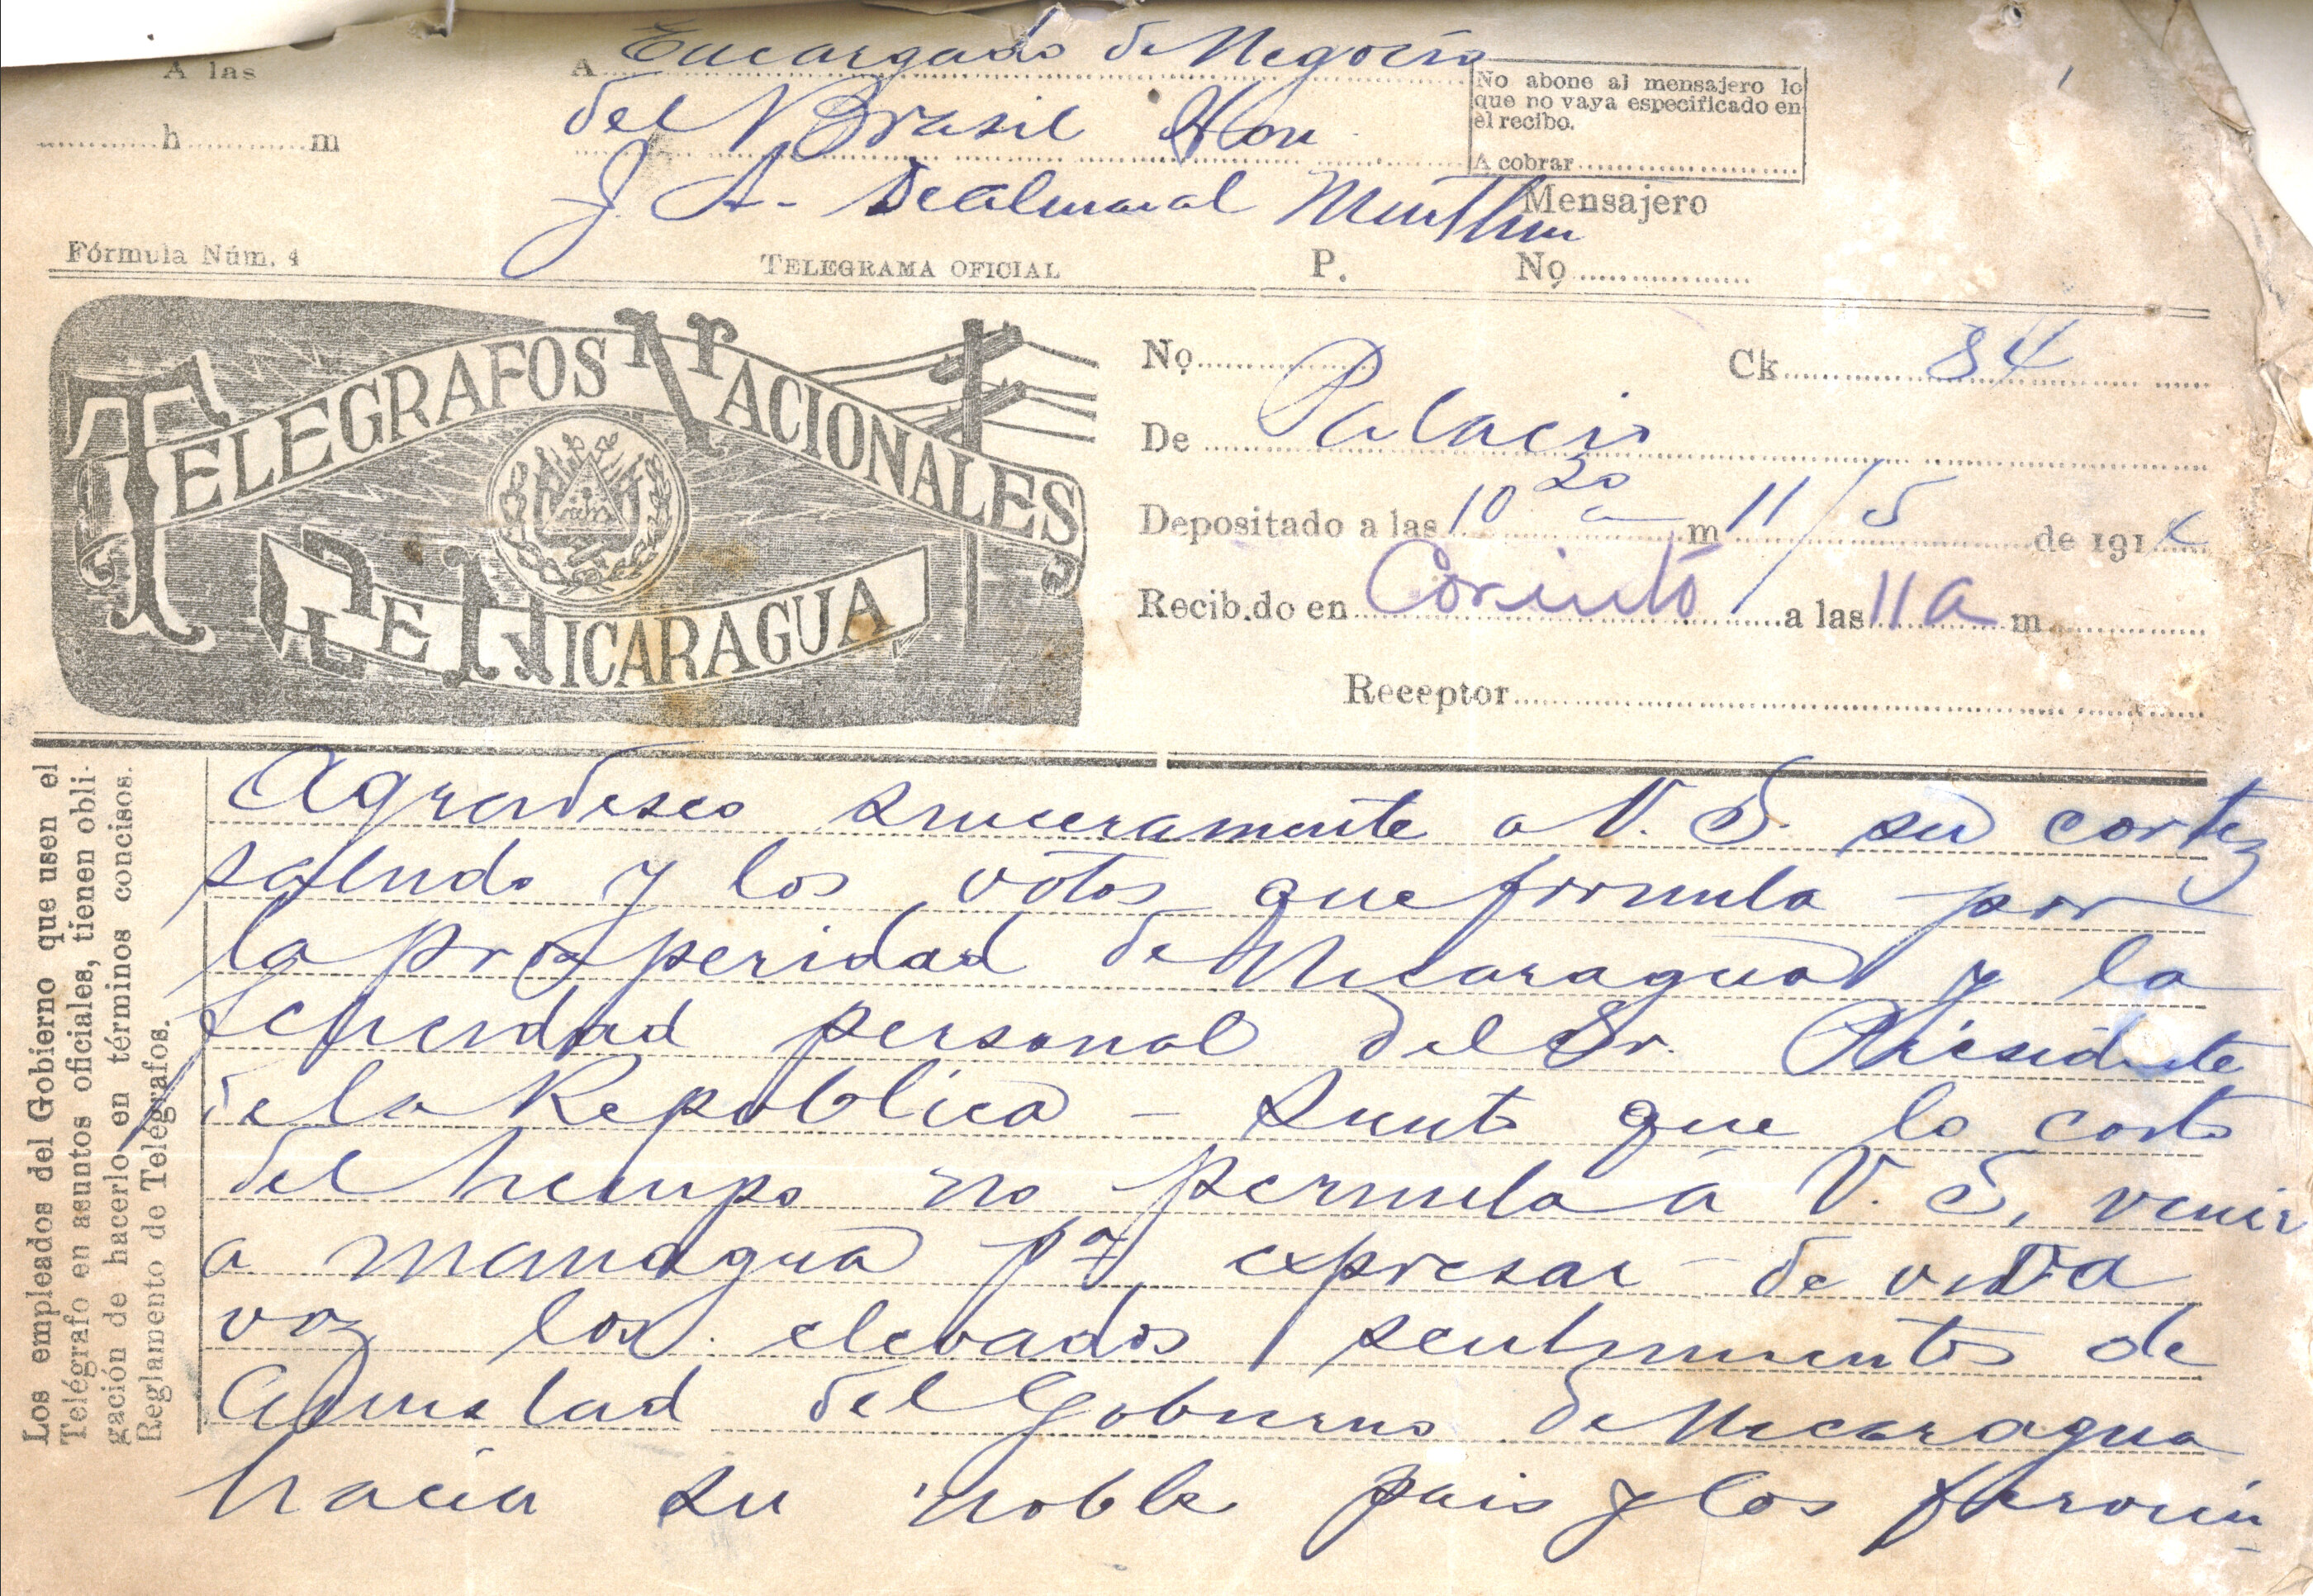 A las
A Encargado de Negocios
del Brasil Hon
J. A.
h m
No abone al mensajero lo
que no vaya especificado en
el recibo.
A cobrar
Mensajero
Fórmula Núm. 4
TELEGRAMA OFICIAL
P. No
TELEGRAFOS NACIONALES
DE NICARAGUA
No Ck 84
De Palacio
Depositado a las 10 20 a m 11/5 de 191
Recib.do en Corinto a las 11 a m
Receptor
Los empleados del Gobierno que usen el
Telégrafo en asuntos oficiales, tienen obli-
gación de hacerlo en términos concisos.
Reglamento de Telégrafos.
Agradesco sinceramente a V. S. su cortez
saludo y los votos que formula por
la prosperidad de Nicaragua y la
felicidad personal del Sr. Presidente
de la República - Siento que lo corto
del tiempo no permita á V. S. venir
a Managua pa expresar de viva
voz los elevados sentimientos de
amistad del Gobierno de Nicaragua
hacia su noble pais y los